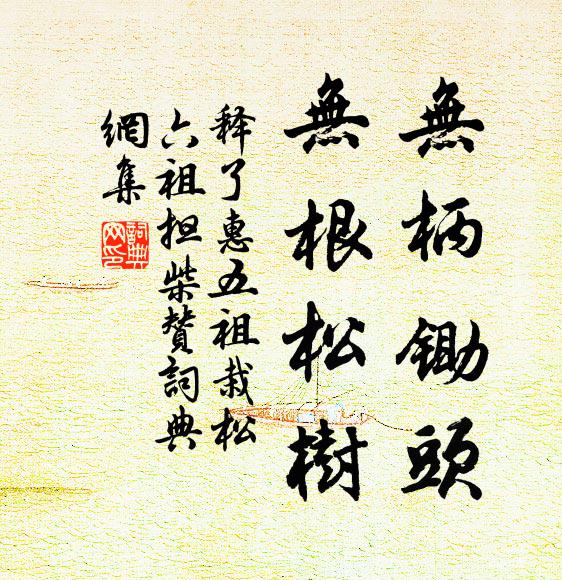 無柄鋤頭
無根松樹
释了惠五祖栽松
六祖担柴贊詞典
網集
詞典
网印